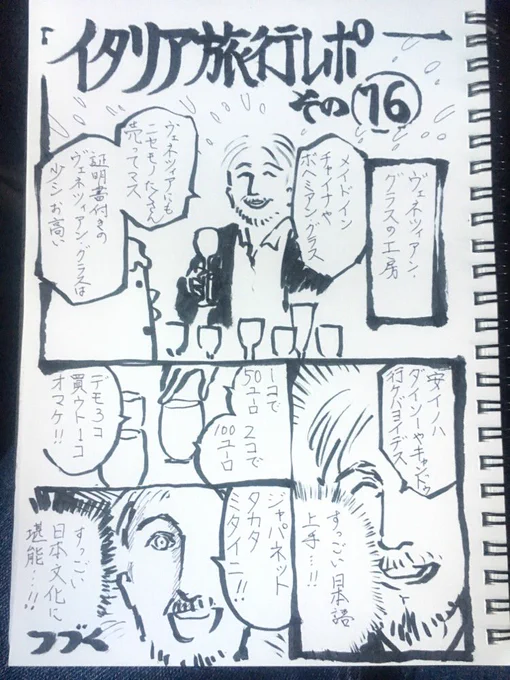 イタリア旅行レポー
その16
ヴェネツィアン・
グラスの工房
メイドイン
チャイナや
ボヘミアングラス
ヴェネツィアにも
ニセモノたくさん
売ってマス
証明書付きの
ヴェネツィアングラスは
少シお高い
安イノハ
ダイソーやキャンドゥ
行ケバヨイデス
すっごい日本語
上手…!!
1コで
50ユーロ
2コで
100ユーロ
デモ3コ
買ウト1コ
オマケ!!
ジャパネット
タカタ
ミタイニ!!
すっごい
日本文化に
堪能…!!
つづく